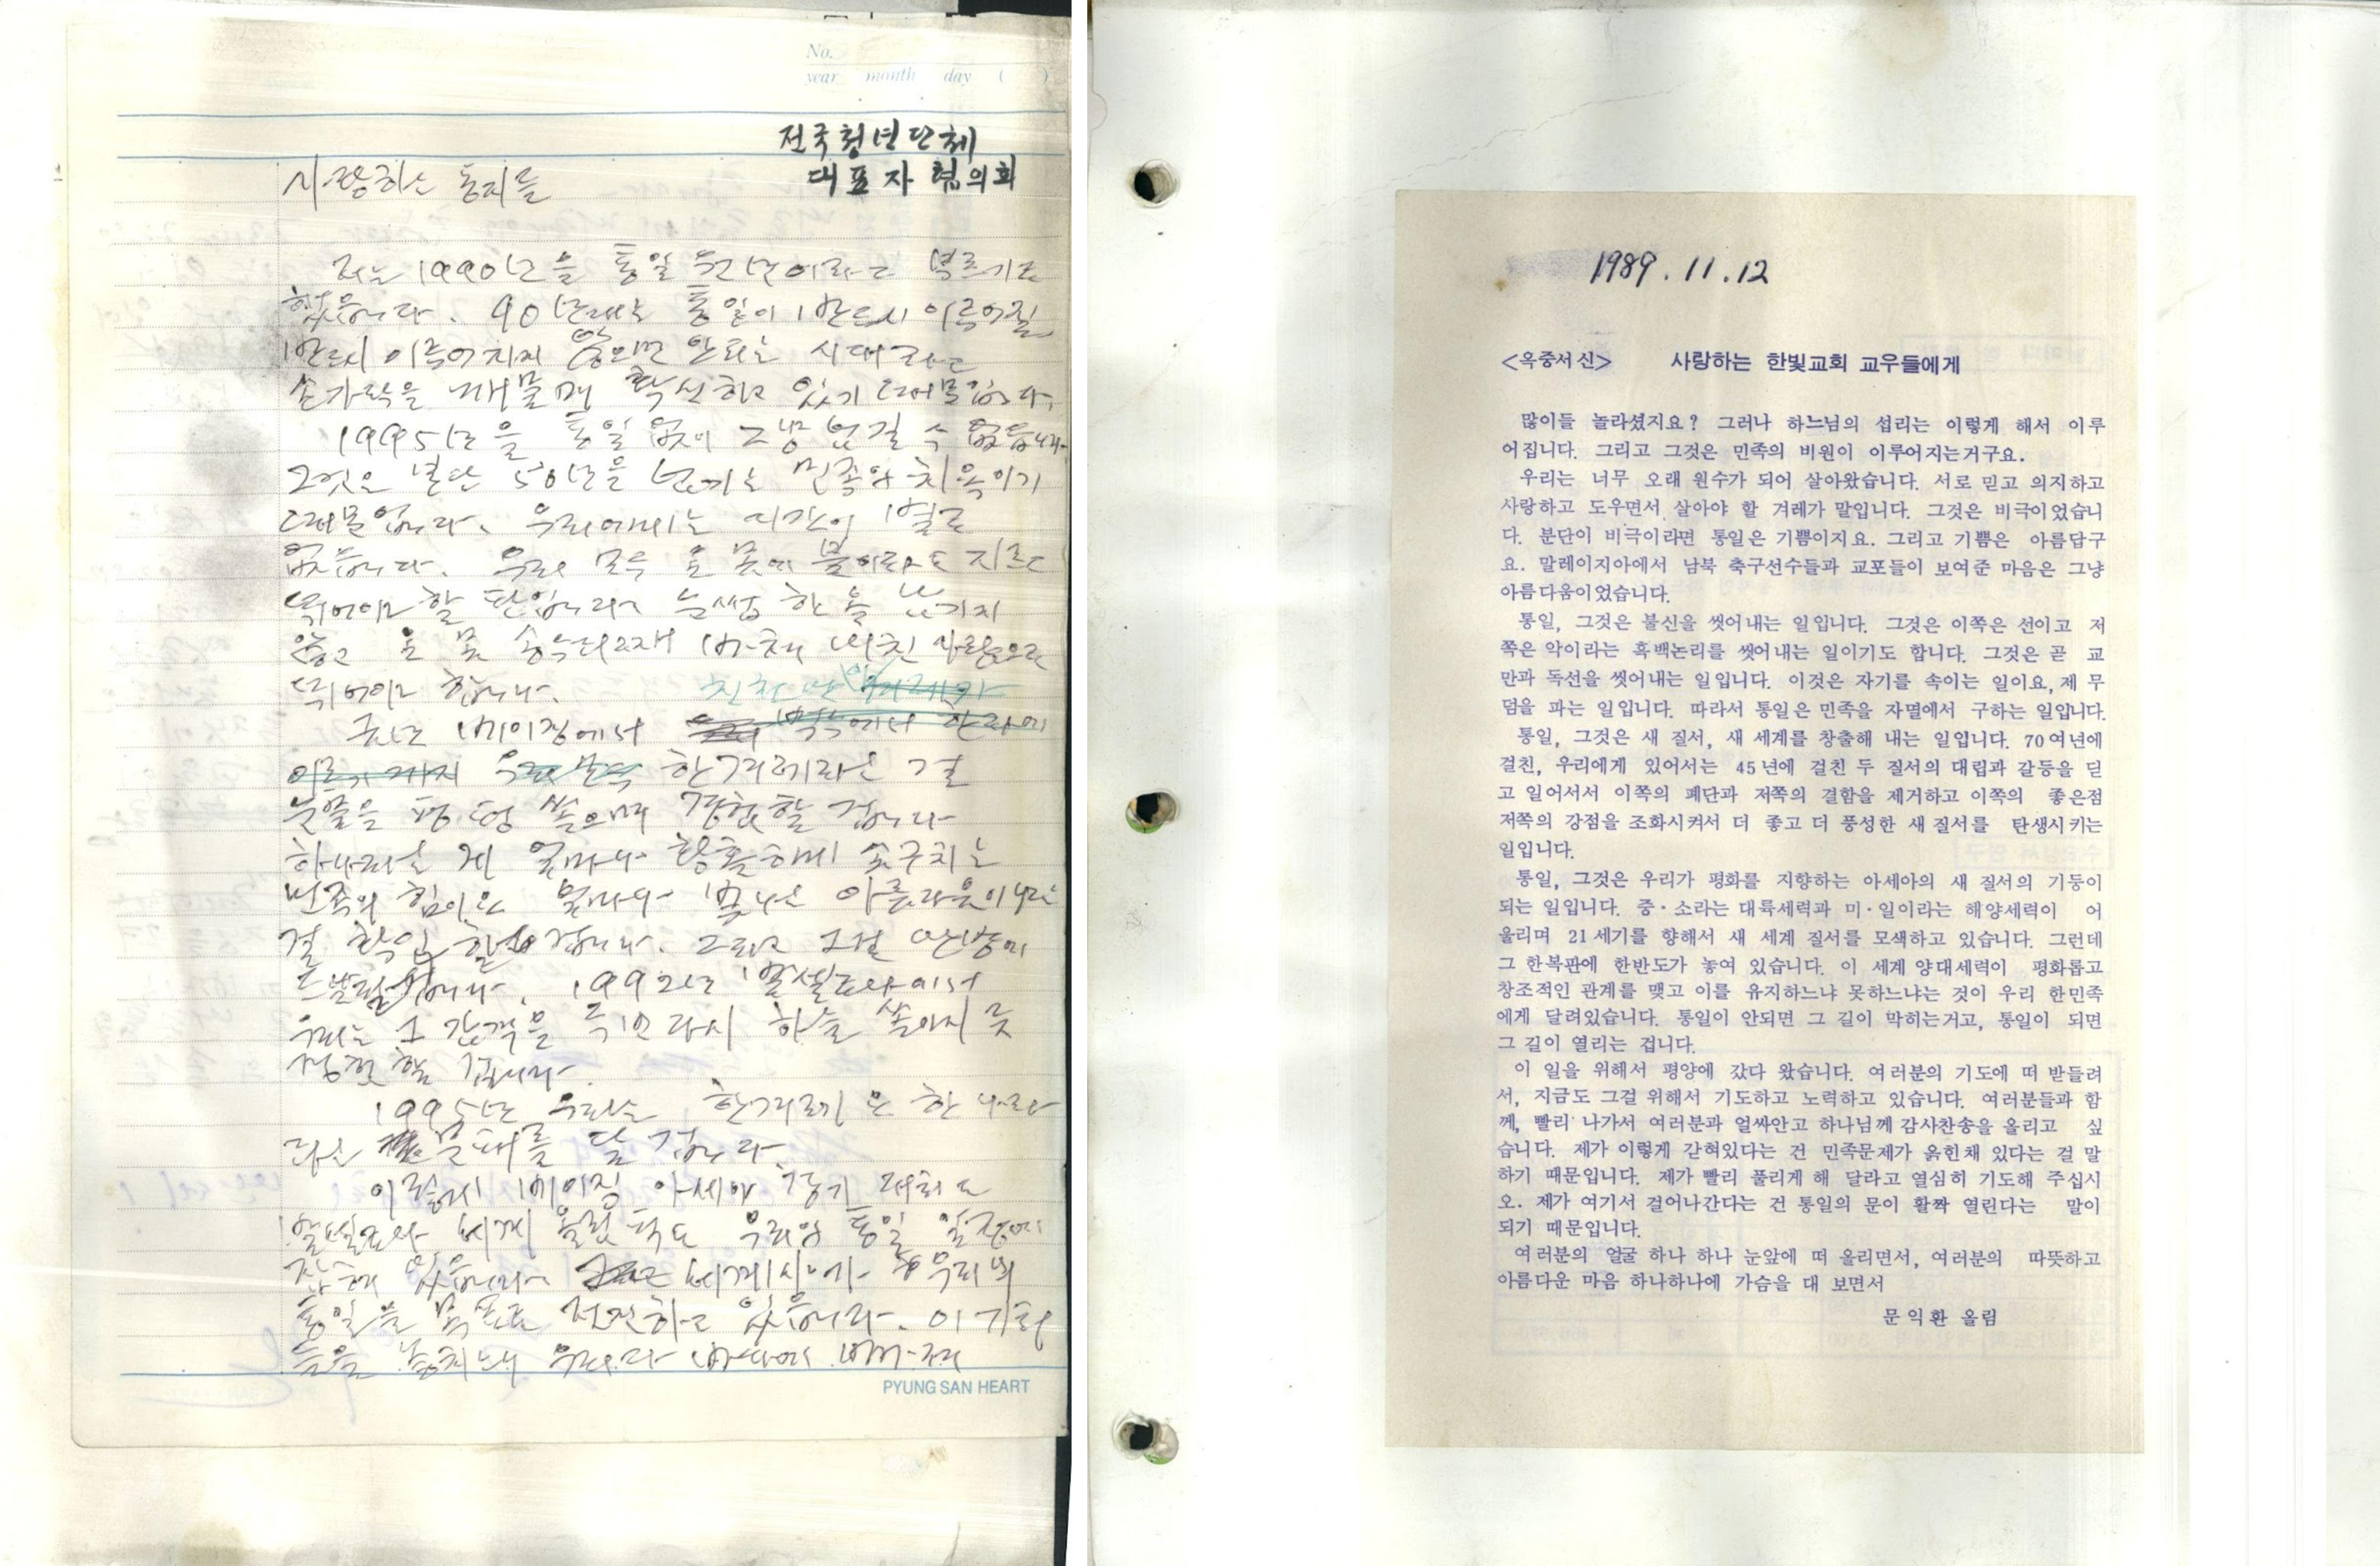 No.
year month day ( )
전국청년단체
대표자 협의회
사랑하는 동지들
저는 1990년을 통일 원년이라고 부르기로
했습니다. 90년대는 통일이 반드시 이루어질
반드시 이루어지지 않으면 안되는 시대라고
손가락을 깨물며 확신하고 있기 때문입니다.
1995년을 통일 없이 그냥 넘길 수 없습니다.
그것은 분단 50년을 넘기는 민족의 치욕이기
때문입니다. 우리에게는 시간이 별로
없습니다. 우리 모두 온 몸에 불이라도 지르고
뛰어야 할 판입니다. 눈썹 하나 남기지
않고 온 몸 송두리째 바쳐 미친 사람으로
뛰어야 합니다.
금년 베이징에서 백두에서 한라에
이르기까지 우리 민족 한겨레라는 걸
눈물을 펑펑 쏟으며 경험할 겁니다
하나라는 게 얼마나 황홀하게 솟구치는
민족의 힘이요 얼마나 빛나는 아름다움이냐는
걸 확인할 겁니다. 그리고 그걸 만방에
1992년 바르셀로나에서
우리는 그 감격을 또 한번 다시 하늘 쏟아지듯
경험할 겁니다.
1995년 우리는 한겨레는 한 나라
라는 문패를 달 겁니다.
이렇게 베이징 아세아 경기 대회도
바르셀로나 세계 올림픽도 우리의 통일 일정에
잡혀 있습니다. 세계 역사가 우리의
통일을 목표로 전진하고 있습니다. 이 기회
들을 놓치면 우리가
PYUNG SAN HEART
1989.11.12
<옥중서신> 사랑하는 한빛교회 교우들에게
많이들 놀라셨지요? 그러나 하느님의 섭리는 이렇게 해서 이루
어집니다. 그리고 그것은 민족의 비원이 이루어지는거구요.
우리는 너무 오래 원수가 되어 살아왔습니다. 서로 믿고 의지하고
사랑하고 도우면서 살아야 할 겨레가 말입니다. 그것은 비극이었습니
다. 분단이 비극이라면 통일은 기쁨이지요. 그리고 기쁨은 아름답구
요. 말레이지아에서 남북 축구선수들과 교포들이 보여준 마음은 그냥
아름다움이었습니다.
통일, 그것은 불신을 씻어내는 일입니다. 그것은 이쪽은 선이고 저
쪽은 악이라는 흑백논리를 씻어내는 일이기도 합니다. 그것은 곧 교
만과 독선을 씻어내는 일입니다. 이것은 자기를 속이는 일이요, 제 무
덤을 파는 일입니다. 따라서 통일은 민족을 자멸에서 구하는 일입니다.
통일, 그것은 새 질서, 새 세계를 창출해 내는 일입니다. 70여년에
걸친, 우리에게 있어서는 45년에 걸친 두 질서의 대립과 갈등을 딛
고 일어서서 이쪽의 폐단과 저쪽의 결함을 제거하고 이쪽의 좋은점
저쪽의 강점을 조화시켜서 더 좋고 더 풍성한 새 질서를 탄생시키는
일입니다.
통일, 그것은 우리가 평화를 지향하는 아세아의 새 질서의 기둥이
되는 일입니다. 중·소라는 대륙세력과 미·일이라는 해양세력이 어
울리며 21세기를 향해서 새 세계 질서를 모색하고 있습니다. 그런데
그 한복판에 한반도가 놓여 있습니다. 이 세계 양대세력이 평화롭고
창조적인 관계를 맺고 이를 유지하느냐 못하느냐는 것이 우리 한민족
에게 달려있습니다. 통일이 안되면 그 길이 막히는거고, 통일이 되면
그 길이 열리는 겁니다.
이 일을 위해서 평양에 갔다 왔습니다. 여러분의 기도에 떠 받들려
서, 지금도 그걸 위해서 기도하고 노력하고 있습니다. 여러분들과 함
께, 빨리 나가서 여러분과 얼싸안고 하나님께 감사찬송을 올리고 싶
습니다. 제가 이렇게 갇혀있다는 건 민족문제가 옭힌채 있다는 걸 말
하기 때문입니다. 제가 빨리 풀리게 해 달라고 열심히 기도해 주십시
오. 제가 여기서 걸어나간다는 건 통일의 문이 활짝 열린다는 말이
되기 때문입니다.
여러분의 얼굴 하나 하나 눈앞에 떠 올리면서, 여러분의 따뜻하고
아름다운 마음 하나하나에 가슴을 대 보면서
문익환 올림